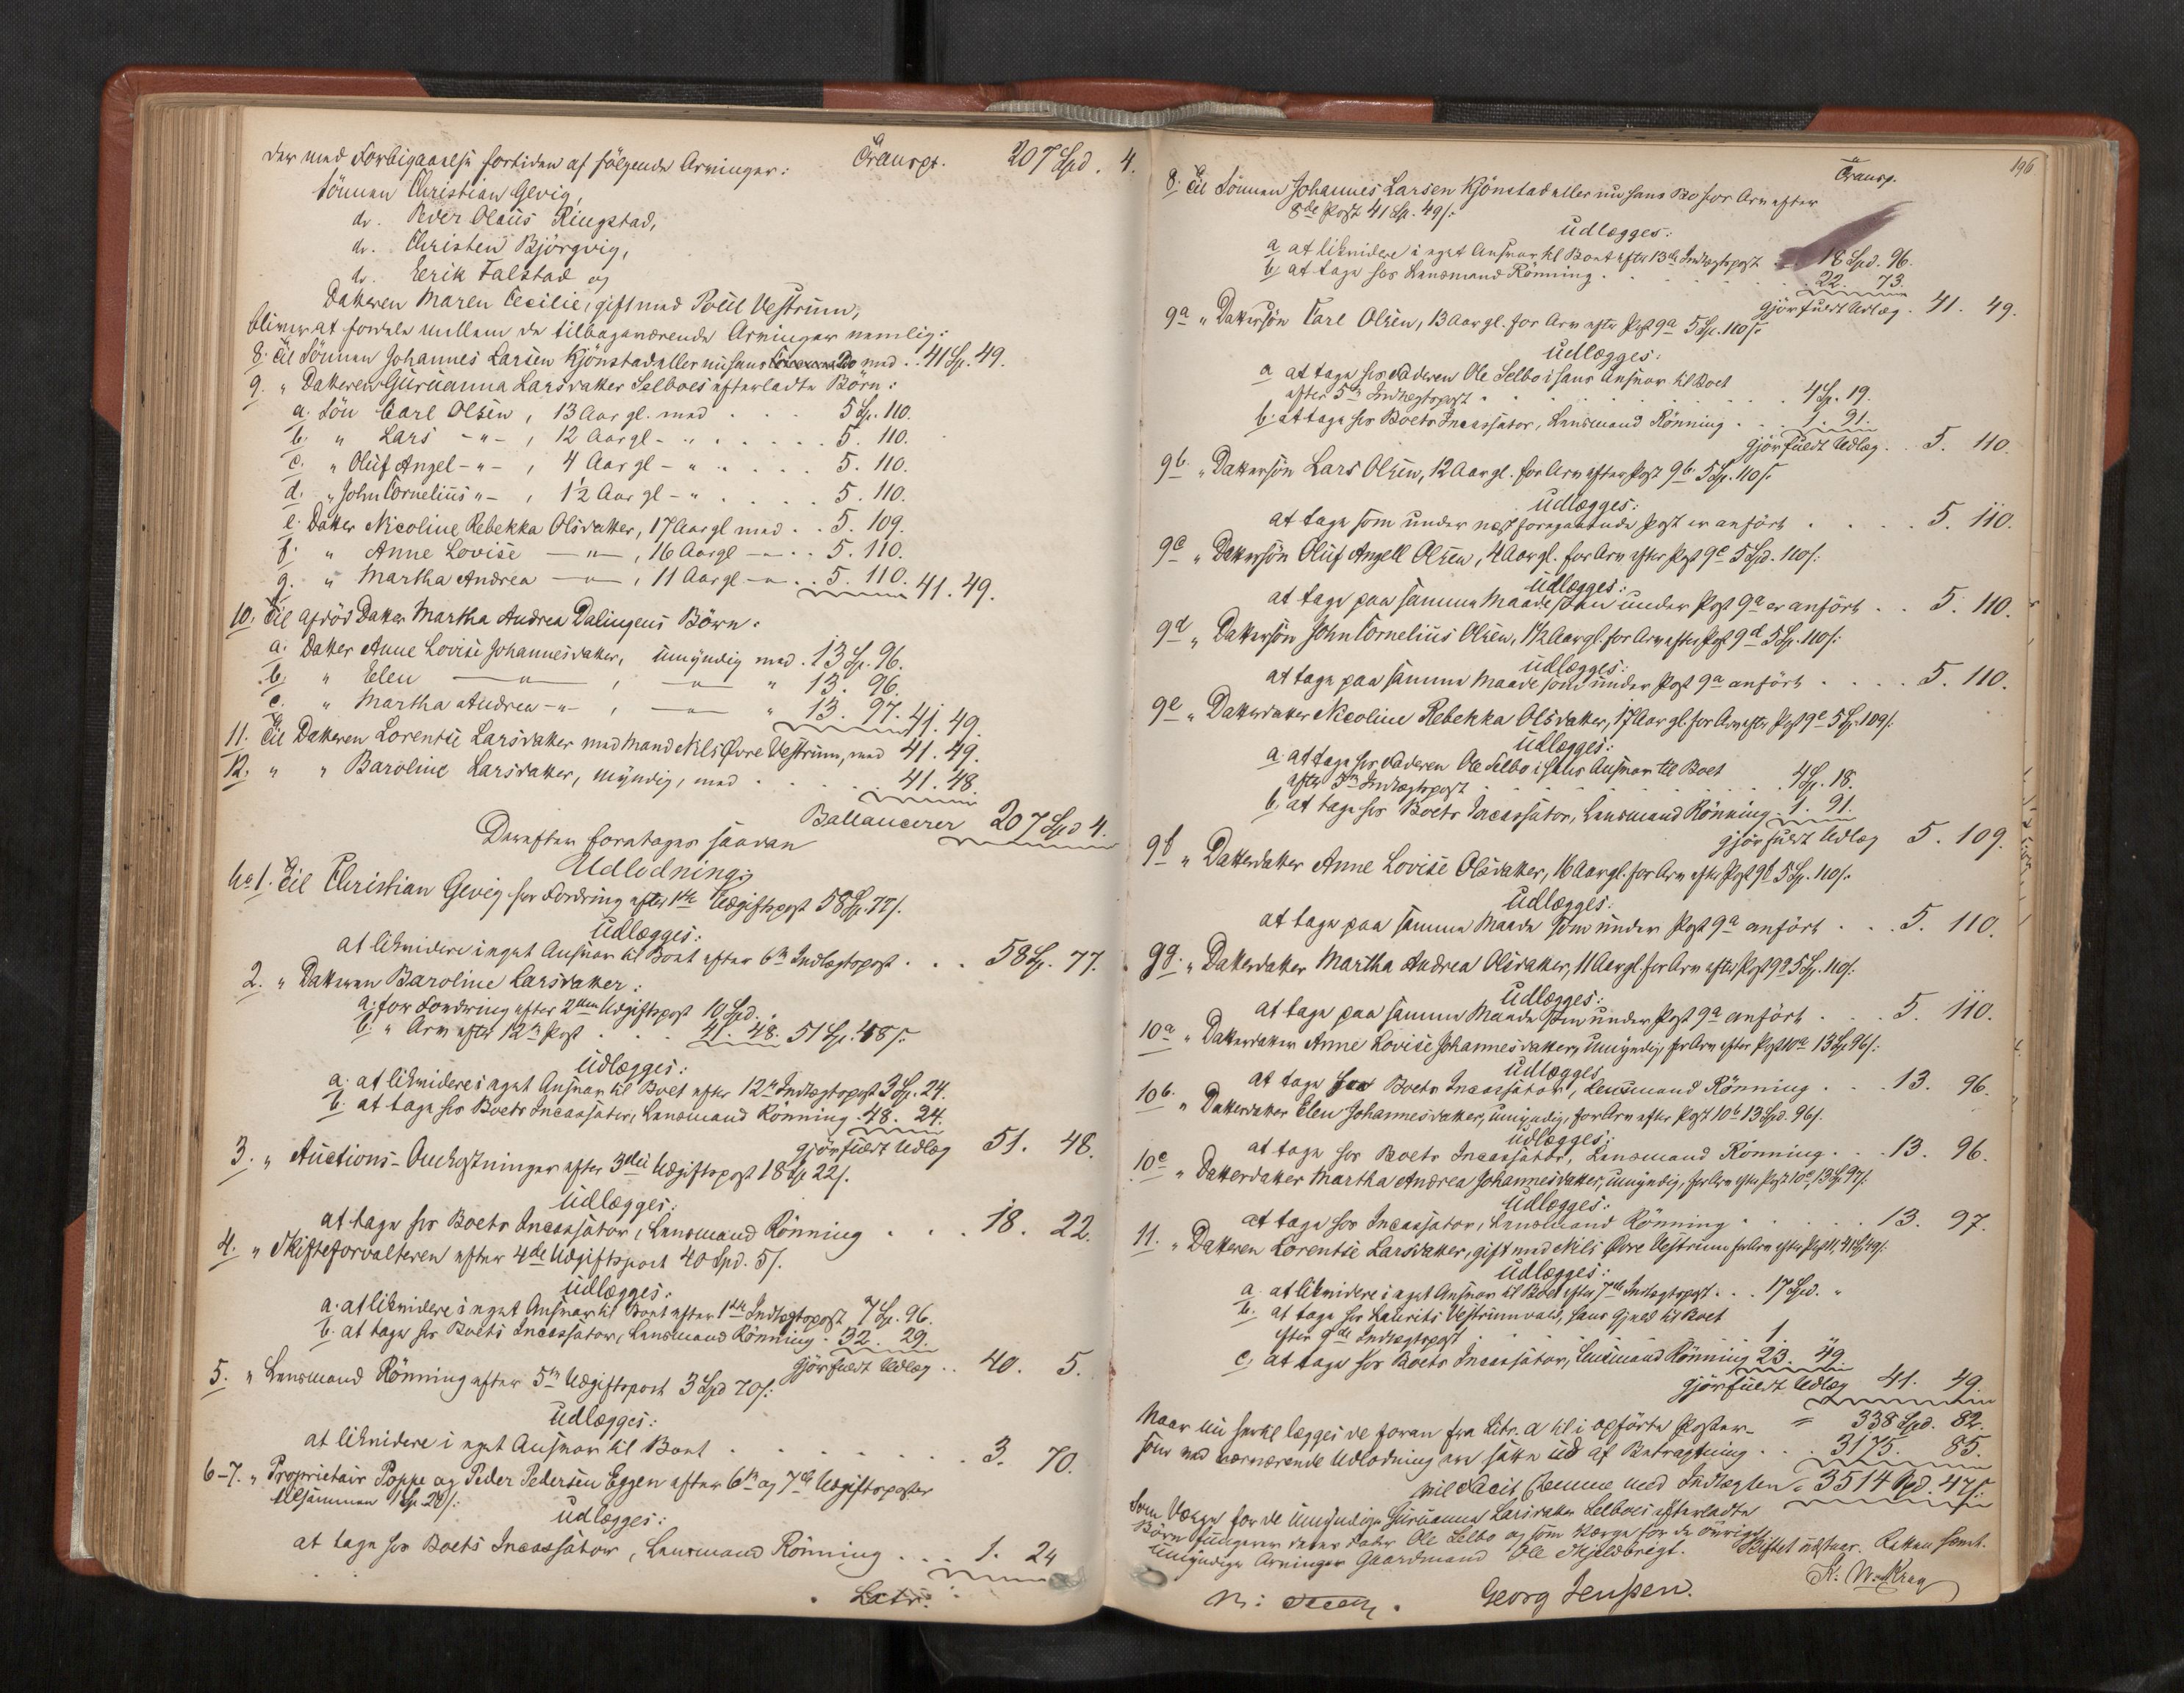 der med Forbigaaelse fortiden af følgende Arvinger: Transpt. 207 Spd. 4.
Sönnen Christian Gevig,
do. Peder Olaüs Ringstad,
do. Christen Björgvig,
do. Eerik Falstad og
Datteren Maren Cecilie, gift med Poül Vestrüm,
bliver at fordele mellem de tilbageværende Arvinger nemlig:
8. Til Sönnen Johannes Larsen Kjönstad eller nü hans Bo med .. 41 Sp. 49.
9. " Datteren Gürüanna Larsdatter Selboes efterladte Börn:
a. Sön Carl Olsen, 13 Aar gl. med . . . 5 Sp. 110.
b. " Lars -"- , 12 Aar gl - " . . . . . 5. 110.
c. " Olüf Angel -"- , 4 Aar gl - " . . . . 5. 110.
d. " John Cornelius "- , 1½ Aar gl - " . . . . 5. 110.
e. Datter Nicoline Rebekka Olsdatter, 17 Aar gl med . . 5. 109.
f. " Anne Lovise —"— , 16 Aar gl —"— . . 5. 110.
g. " Martha Andrea —"— , 11 Aar gl —"— . . 5. 110. 41. 49.
10. Til afdöd Datter Martha Andrea Dalingens Börn:
a. Datter Anne Lovise Johannesdatter, ümyndig med . 13 Sp. 96.
b. " Elen —"— , —"— " 13. 96.
c. " Martha Andrea -"- , —"— " 13. 97. 41. 49.
11. Til Datteren Lorentse Larsdatter med Mand Nils Övre Vestrüm, med 41. 49.
12. " " Baroline Larsdatter, myndig, med . . . . 41. 48.
Ballancerer 207 Spd 4.
Derefter foretages saadan
Udlodning:
No 1. Til Christian Gevig for Fordring efter 1ste Udgiftspost 58 Sp. 77 s.
üdlægges:
at likvidere i eget Ansvar til Boet efter 6te Indtægtspost . . . 58 Sp. 77.
2. " Datteren Baroline Larsdatter:
a. for Fordring efter 2den Udgiftspost 10 Spd.
b. " Arv efter 12te Post . . . 41. 48. 51 Sp. 48 s.
üdlægges:
a. at likvidere i eget Ansvar til Boet efter 12te Indtægtspost 3 Sp. 24.
b. at tage hos Boets Incassator, Lensmand Rönning 48. 24.
gjör füldt Udlæg 51. 48.
3. " Auctions-Omkostninger efter 3die Udgiftspost 18 Sp 22 s.
üdlægges:
at tage hos Boets Incassator, Lensmand Rönning . . . 18. 22.
4. " Skifteforvalteren efter 4de Udgiftspost 40 Spd. 5 s.
üdlægges:
a. at likvidere i eget Ansvar til Boet efter 1ste Indtægtspost 7 Sp. 96.
b. at tage hos Boets Incassator, Lensmand Rönning . 32. 29.
gjör füldt Udlæg .. 40. 5.
5. " Lensmand Rönning efter 5te Udgiftspost 3 Spd 70 s:
üdlægges:
at likvidere i eget Ansvar til Boet . . . . . . . 3. 70.
6-7. " Proprietair Poppe og Peder Pedersen Eggen efter 6te og 7de Udgiftsposter
tilsammen 1 Sp. 24 s:
üdlægges:
at tage hos Boets Incassator, Lensmand Rönning . . . 1. 24
Latr:
196
Transp.
8. Til Sönnen Johannes Larsen Kjönstad eller nü hans Bo for Arv efter
8de Post 41 Sp. 49 s:
üdlægges:
a. at likvidere i eget Ansvar til Boet efter 13de Indtægtspost 18 Spd. 96.
b. at tage hos Lensmand Rönning . . . . 22. 73.
gjör füldt Udlæg . 41. 49.
9a " Dattersön Carl Olsen, 13 Aar gl. for Arv efter Post 9a 5 Sp. 110 s.
üdlægges:
a. at tage hos Faderen Ole Selbo i hans Ansvar til Boet
efter 5te Indtægtspost . . . . 4 Sp. 19.
b. at tage hos Boets Incassator, Lensmand Rönning . . . 1. 91.
gjör füldt Udlæg . . 5. 110.
9b. " Dattersön Lars Olsen, 12 Aar gl. for Arv efter Post 9b 5 Sp. 110 s.
üdlægges:
at tage som ünder næst foregaaende Post er anfört . . . . 5. 110.
9c " Dattersön Olüf Angell Olsen, 4 Aar gl. for Arv efter Post 9c 5 Spd. 110 s:
üdlægges:
at tage paa samme Maade som ünder Post 9a er anfört . . 5. 110.
9d " Dattersön John Cornelius Olsen, 1½ Aar gl. for Arv efter Post 9d 5 Sp. 110 s:
üdlægges:
at tage paa samme Maade som ünder Post 9a anfört . . . . 5. 110.
9e " Datterdatter Nicoline Rebekka Olsdatter, 17 Aar gl. for Arv efter Post 9e 5 Sp. 109 s:
üdlægges:
a. at tage hos Faderen Ole Selbo i hans Ansvar til Boet
efter 5te Indtægtspost . . . . 4 Sp. 18.
b. at tage hos Boets Incassator, Lensmand Rönning . 1. 91.
gjör füldt Udlæg 5. 109.
9f " Datterdatter Anne Lovise Olsdatter, 16 Aar gl. for Arv efter Post 9f 5 Sp. 110 s.
üdlægges:
at tage paa samme Maade som ünder Post 9a anfört . . . 5. 110.
9g. " Datterdatter Martha Andrea Olsdatter, 11 Aar gl. for Arv efter Post 9g 5 Sp. 110 s:
üdlægges:
at tage paa samme Maade som ünder Post 9a anfört . . . 5. 110.
10a " Datterdatter Anne Lovise Johannesdatter, ümyndig, for Arv efter Post 10a 13 Sp 96 s:
üdlægges
at tage hos Boets Incassator, Lensmand Rönning . . . 13. 96.
10b. " Datterdatter Elen Johannesdatter, ümyndig, for Arv efter Post 10b 13 Spd. 96 s.
üdlægges:
at tage hos Boets Incassator, Lensmand Rönning . . . 13. 96.
10c " Datterdatter Martha Andrea Johannesdatter, ümyndig, for Arv efter Post 10c, 13 Sp 97 s.
üdlægges:
at tage hos Incassator, Lensmand Rönning . . . . . 13. 97.
11. " Datteren Lorentse Larsdatter, gift med Nils Övre Vestrüm for Arv efter Post 11, 41 Sp 49 s:
üdlægges:
a. at likvidere i eget Ansvar til Boet efter 7de Indtægtspost . . . 17 Spd. "
b. at tage hos Laurits Vestrümvald, hans Gjæld til Boet
efter 9de Indtægtspost . . . . 1
c. at tage hos Boets Incassator, Lensmand Rönning 23. 49.
gjör füldt Udlæg 41. 49.
Naar nü hertil lægges de foran fra Litr. a til i opförte Poster = 338 Spd. 82.
som ved nærværende Udlodning ere satte üd af Betragtning . . . 3175. 85.
vil Facit stemme med Indtægten = 3514 Spd. 47 s:
Som Værge for de ümyndige Gürüanna Larsdatter Selboes efterladte
Börn füngerer deres Fader Ole Selbo og som Værge for de övrige
ümyndige Arvinger Gaardmand Ole Skjeldbreigt. Skiftet slüttes. Retten hævet.
K. W. Krag
Georg Jenssen.